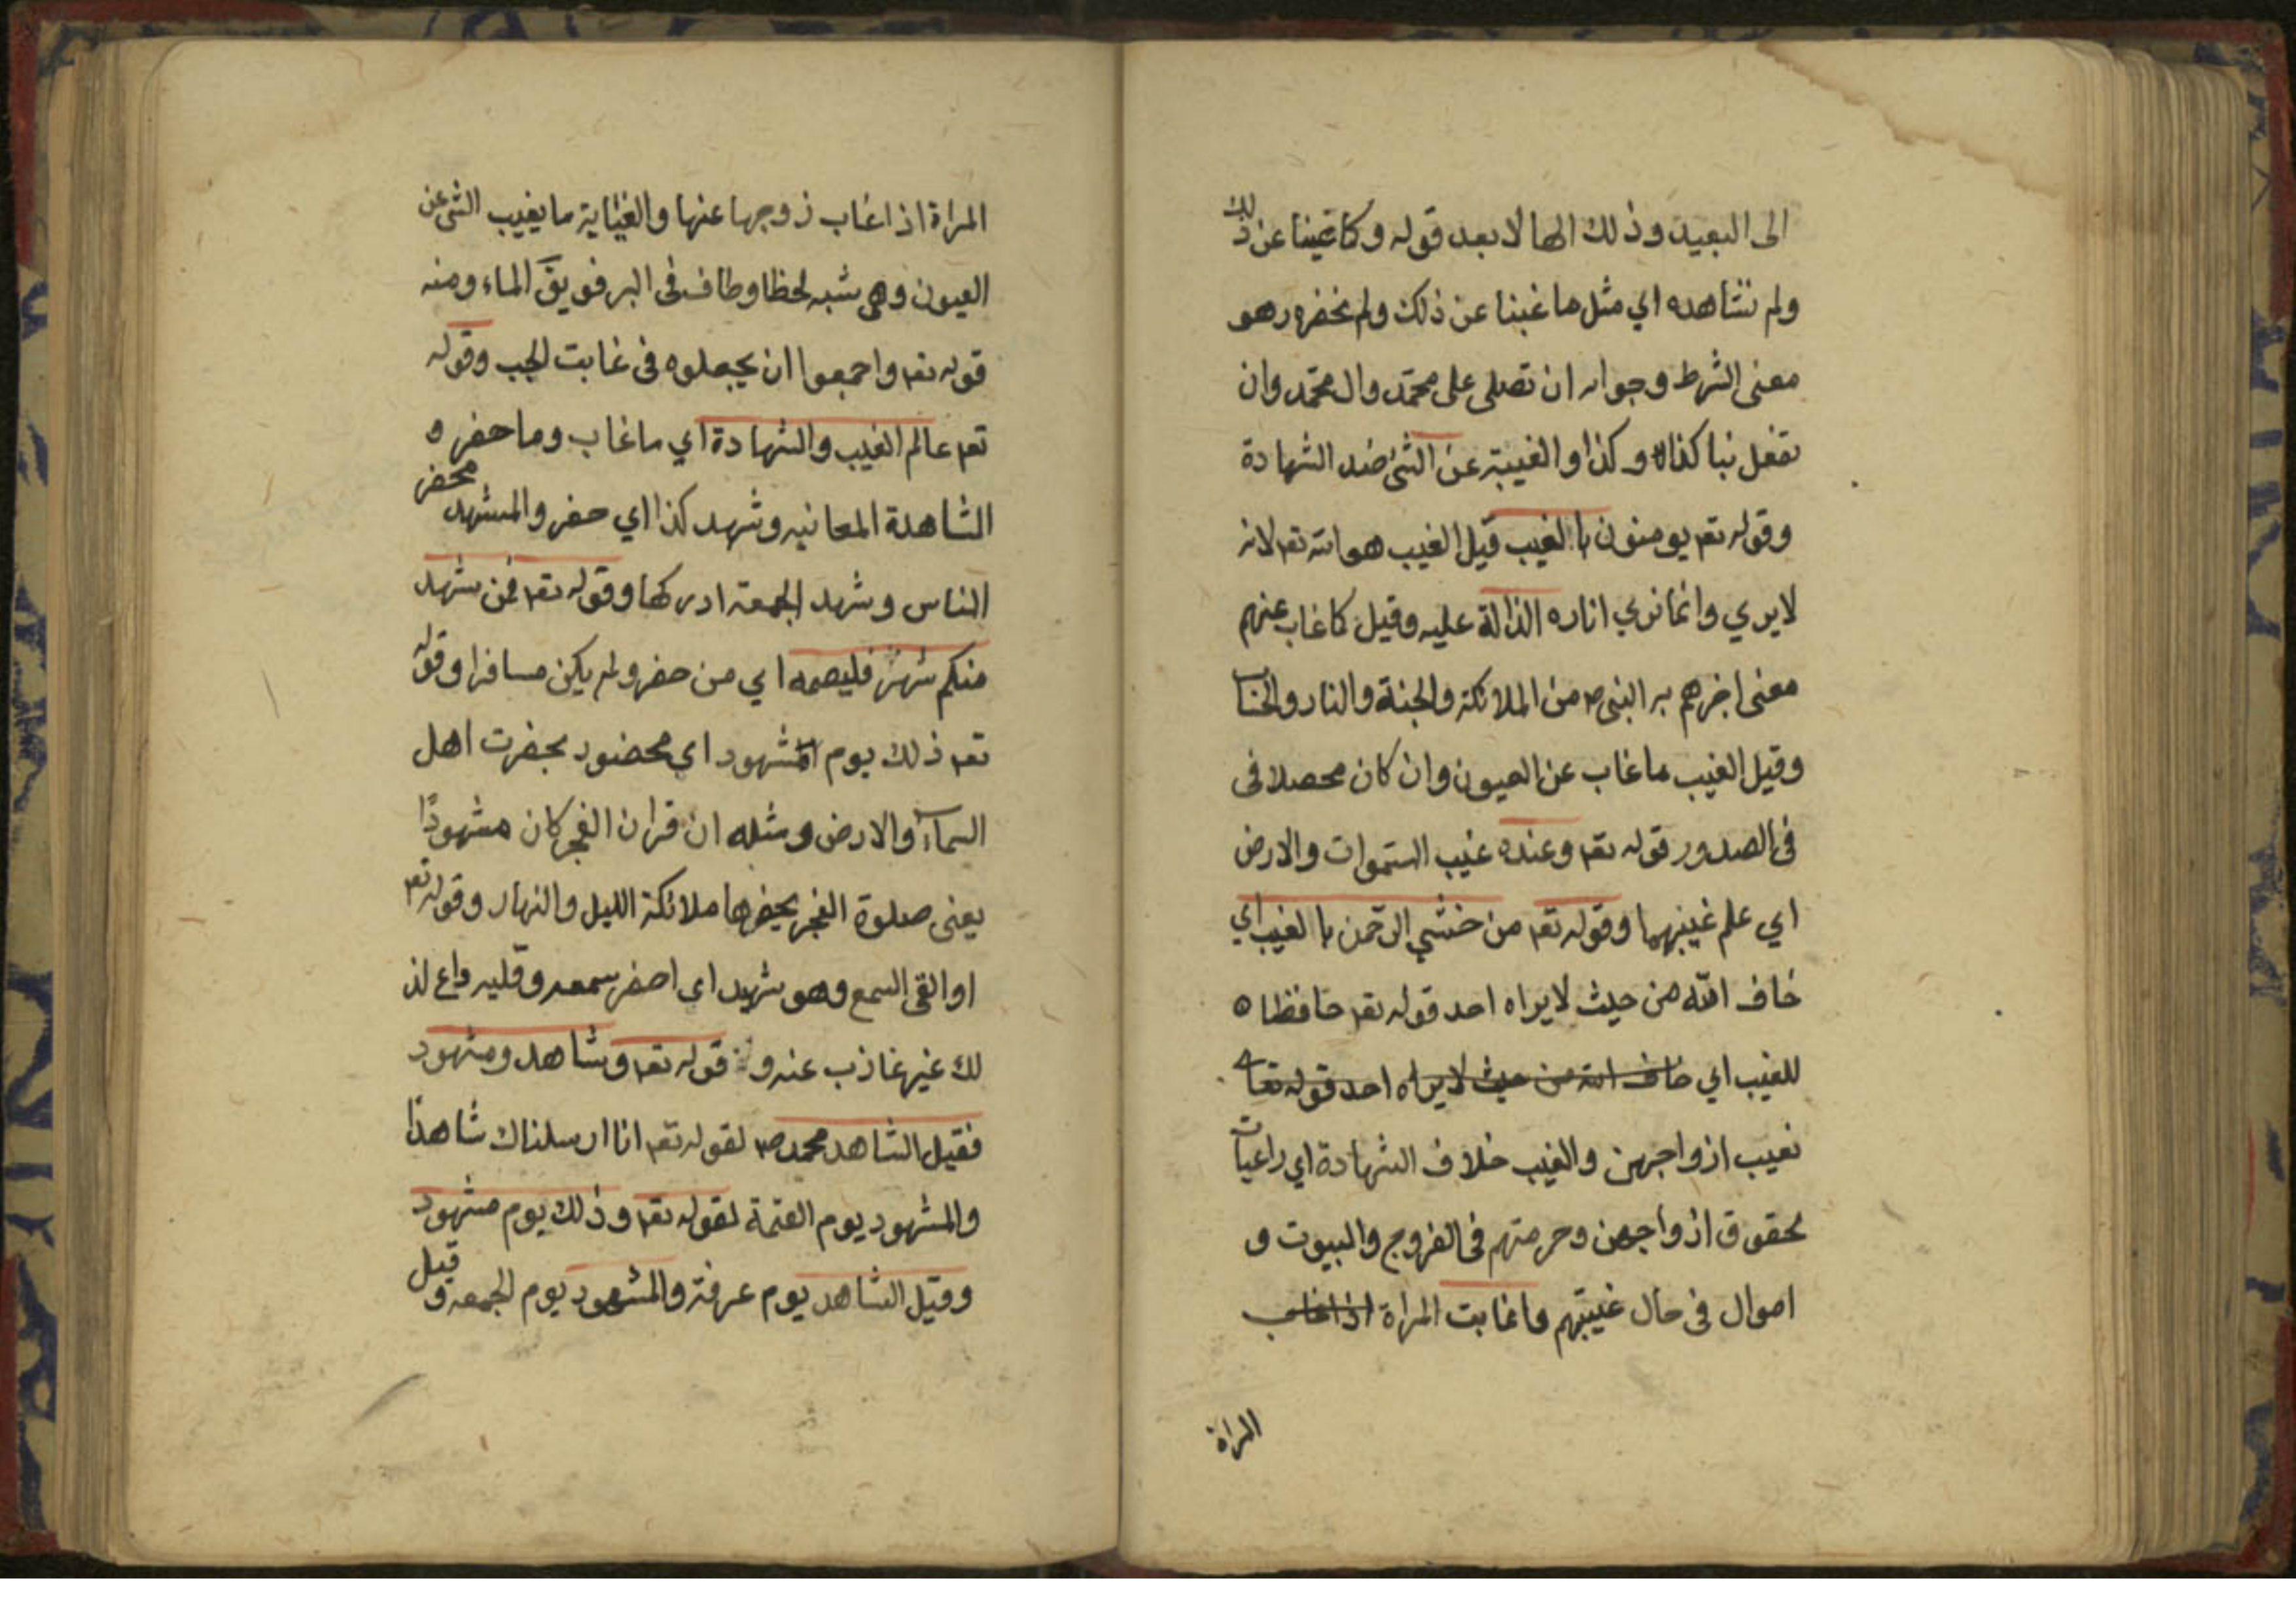 الى البعيد وذلك الها لا بعد قوله وكما غبنا عن ذلك
ولم نشاهده اي مثل ما غبنا عن ذلك ولم نحضره وهو
معنى الشرط وجوابه ان تصلى على محمّد وال محمّد وان
تفعل بنا كذا وكذا والغيبة عن الشئ ضد الشهادة
وقوله تعم يومنون با الغيب قيل الغيب هو الله تعم لانه
لا يري وانما نري اثاره الدالة عليه وقيل كما غاب عنهم
معنى اخبرهم به النبى ص من الملائكة والجنة والنار والحساب
وقيل الغيب ما غاب عن العيون وان كان محصلا فى
فى الصدور قوله تعم وعنده غيب السّموات والارض
اي علم غيبهما وقوله تعم من خشي الرّحمن با لغيب اي
خاف الله من حيث لا يراه احد قوله تعم حافظا ه
للغيب اي خاف الله من حيث لا يراه احد قوله تعا
لغيب ازواجهن والغيب خلاف الشهادة اي راعيات
بحقوق ازواجهن وحرمتهم فى الفروج والبيوت و
اموال فى حال غيبتهم واغابت المراة اذا غاب
المراة
المراة اذا غاب زوجها عنها والغيابة ما يغيب الشئ عن
العيون وهى شبه لحظا وطاف فى البر فويق الماء ومنه
قوله تعم واجمعوا ان يجعلوه فى غابت الجب وقوله
تعم عالم الغيب والشهادة اي ما غاب وما حضر ه
الشاهدة المعانيه وشهد كذا اي حضر والمشهد محضر
الناس وشهد الجمعة ادركها وقوله تعم فمن شهد
منكم شهر فليصمه اي من حضر ولم يكن مسافرا وقوله
تعم ذلك يوم المشهود اى محضور بحضرت اهل
السمآء والارض ومثله ان قران الفجر كان مشهودًا
يعنى صلوة الفجر يحضرها ملائكة الليل والنهار وقوله تعم
او القى السمع وهو شهيد اى احضر سمعه وقلبه واع لذ
لك غير غاذب عنه و قوله تعم وشاهد ومشهود
فقيل الشاهد محمد ص لقوله تعم انا ارسلناك شاهدًا
والمشهود يوم القتمة لقوله تعم وذلك يوم مشهود
وقيل الشاهد يوم عرفة والمشهود يوم الجمعه وقيل